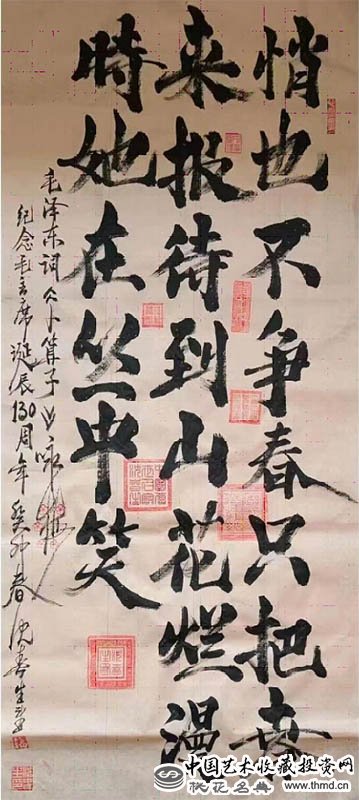 悄也不争春只把春
来报待到山花烂漫
時她在丛中笑
毛泽东词 卜算子 咏梅
纪念毛主席诞辰130周年 癸卯春
中国艺术收藏投资网
桃花名典 www.thmd.cn